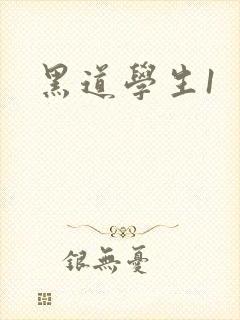 黑道學生1
銀無憂